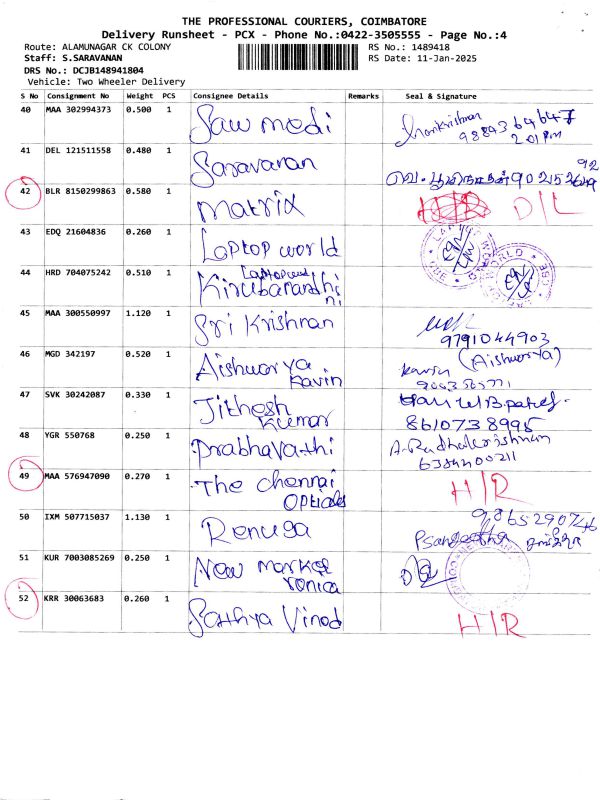 THE PROFESSIONAL COURIERS, COIMBATORE
Delivery Runsheet - PCX - Phone No.:0422-3505555 - Page No.:4
Route: ALAMUNAGAR CK COLONY
RS No.: 1489418
Staff: S.SARAVANAN
RS Date: 11-Jan-2025
DRS No.: DCJB148941804
Vehicle: Two Wheeler Delivery
S No Consignment No Weight PCS Consignee Details Remarks Seal & Signature
40 MAA 302994373 0.500 1 Saw medi
9884364647
2.01 PM
41 DEL 121511558 0.480 1 Saravanan
42 BLR 8150299863 0.580 1 Matrix H/R D/L
43 EDQ 21604836 0.260 1 Laptop world
44 HRD 704075242 0.510 1 Laptop world
45 MAA 300550997 1.120 1 Sri Krishnan
9791044903
46 MGD 342197 0.520 1 Aishwarya Kavin
(Aishwarya)
Kavin
47 SVK 30242087 0.330 1 Jithesh Kumar
8610738995
48 YGR 550768 0.250 1 Prabhavathi
A. Radhakrishnan
6384400211
49 MAA 576947090 0.270 1 The Chennai Opticals H/R
50 IXM 507715037 1.130 1 Renuga
9865290746
P Sangeetha
51 KUR 7003085269 0.250 1 New Market
52 KRR 30063683 0.260 1 Sathya Vinod H/R